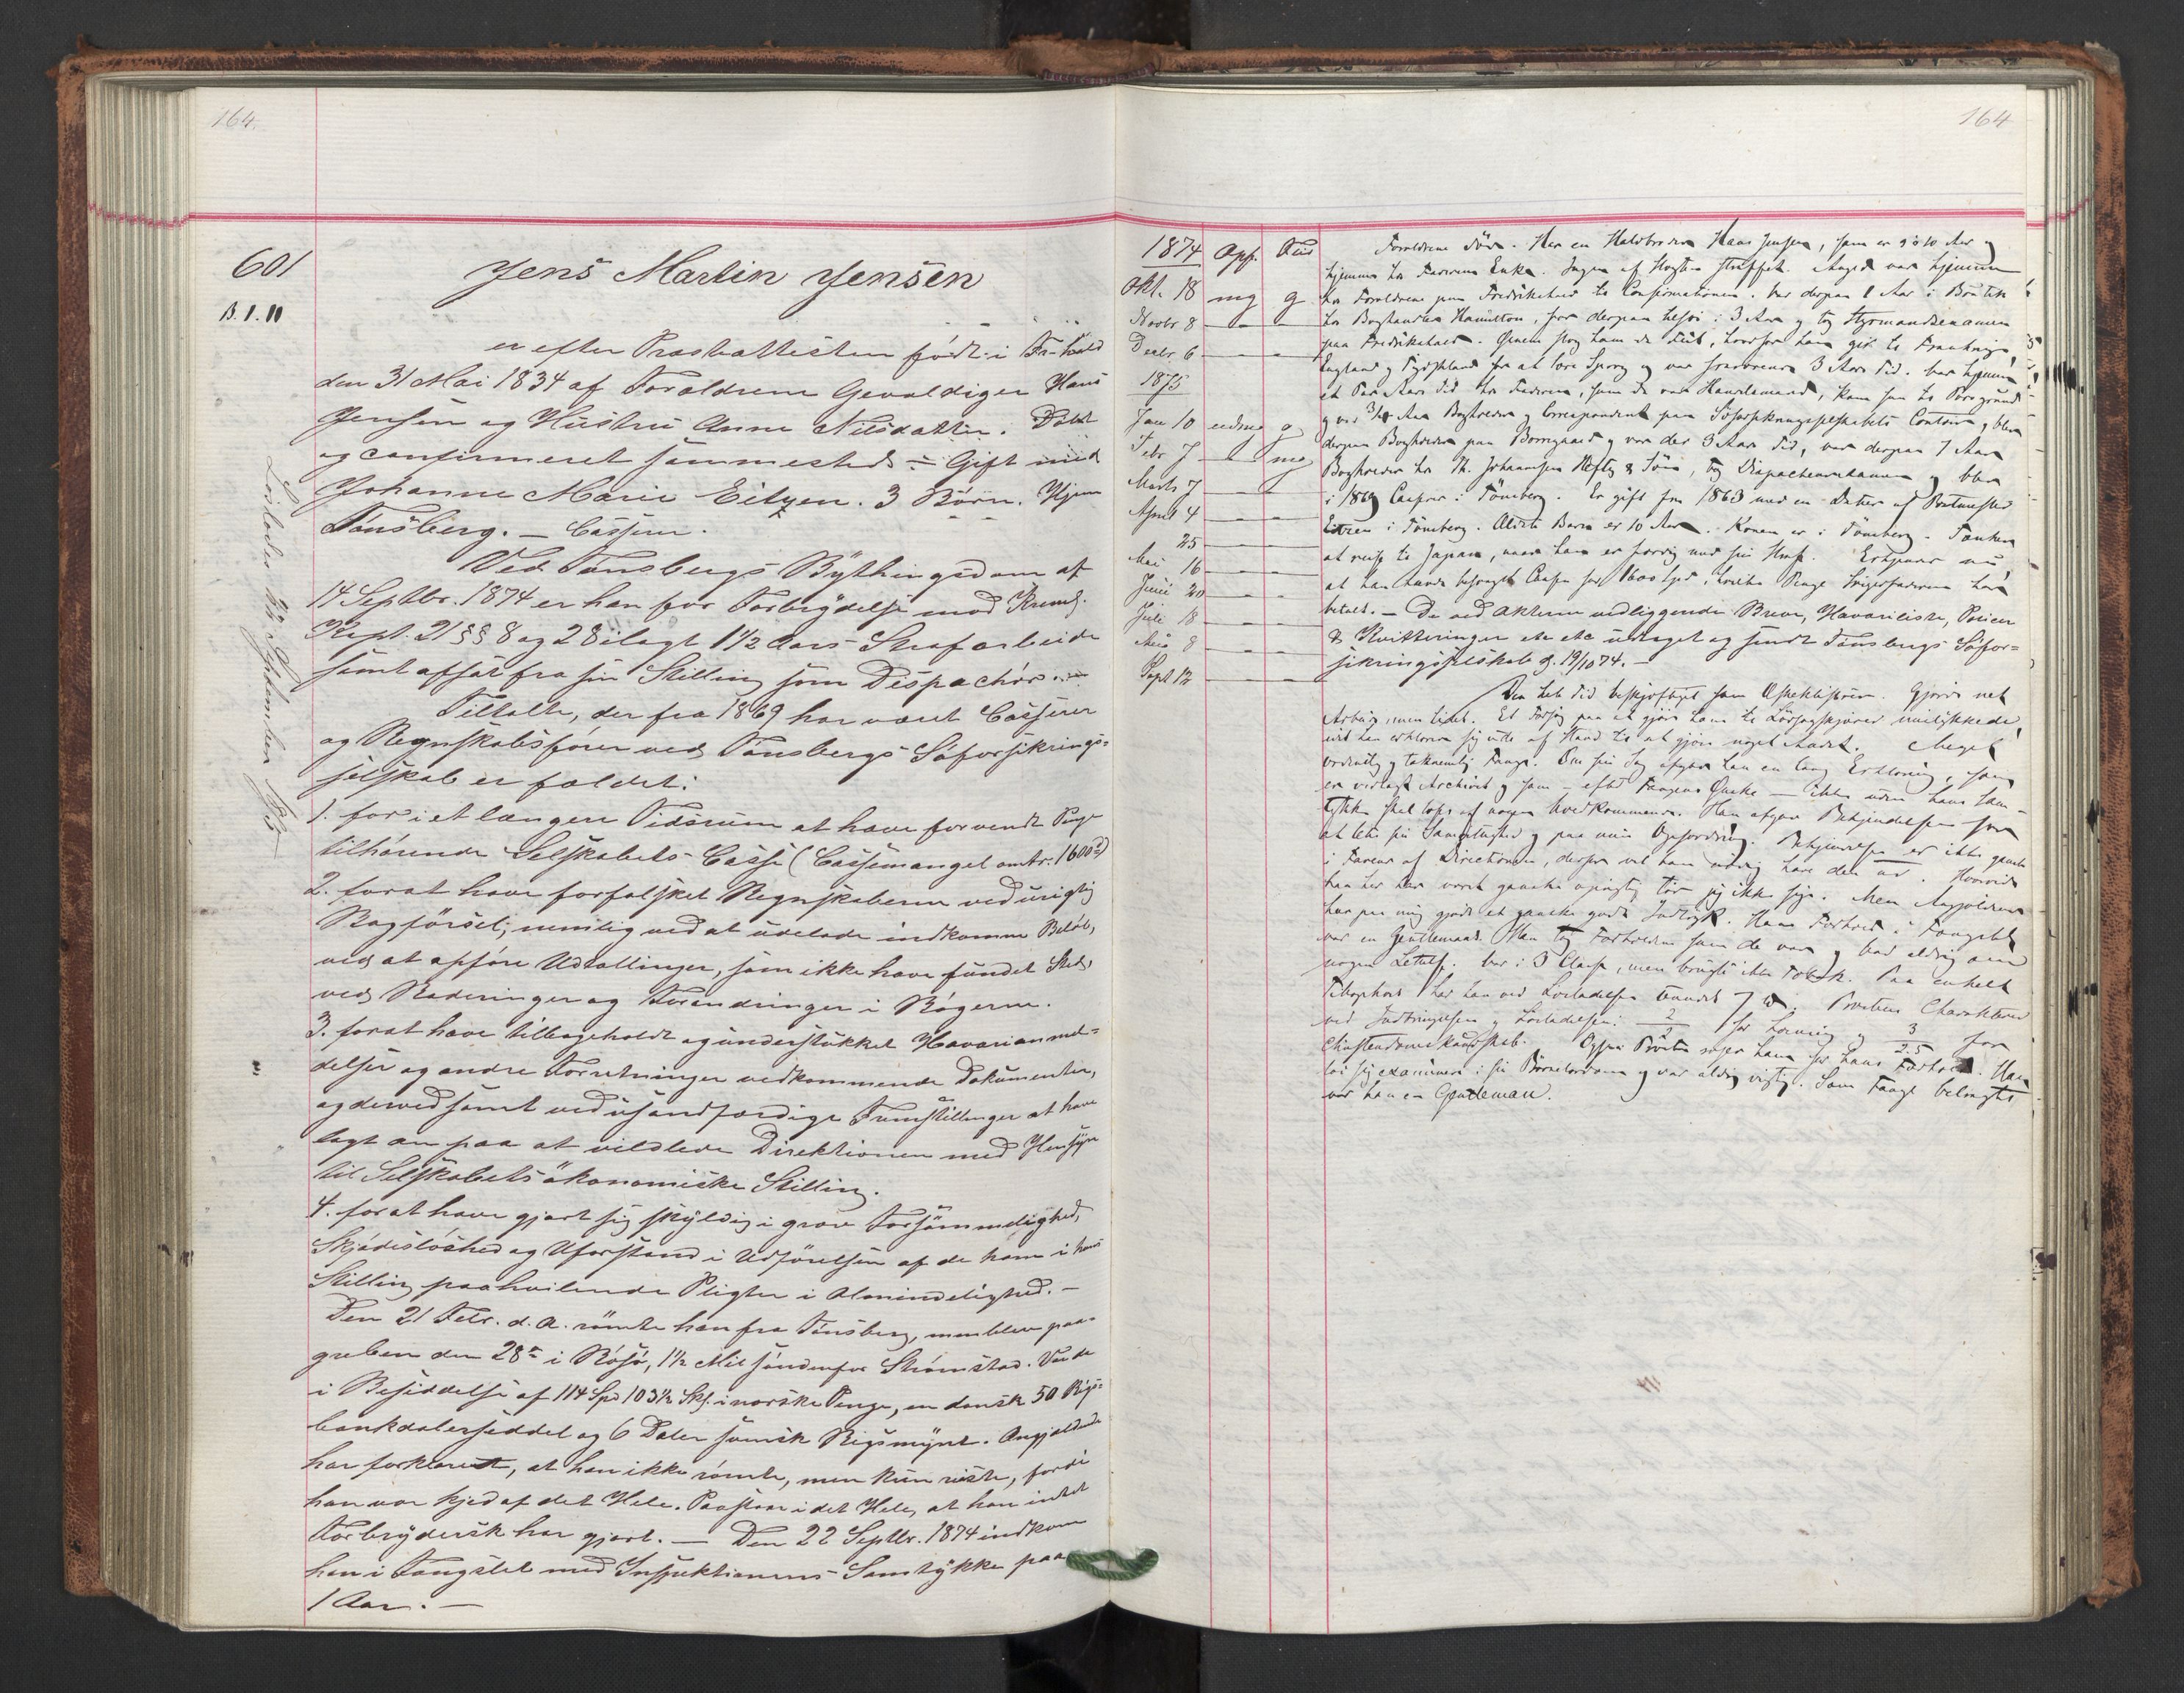 164.
601
B. 1. 11
Jens Martin Jensen
er efter Præsteattesten født i Fr-hald
den 31 Mai 1834 af Forældrene Gevaldiger Hans
Jensen og Hustru Anne Nilsdatter. Døbt
og confirmeret sammesteds. Gift med
Johanne Marie Eitzen. 3 Børn. Hjem
Tønsberg. — Casserer.
Løsladt 22 September 1875
Ved Tønsbergs Bythingsdom af
14 Septbr. 1874 er han for Forbrydelse mod Kriml.
Kapt. 21 §§ 8 og 28 ilagt 1 1/2 Aars Strafarbeide
samt afsat fra sin Stilling som Dispachør.
Tiltalte, der fra 1869 har været Casserer
og Regnskabsfører ved Tønsbergs Søforsikrings-
selskab er fældet:
1. for i et længere Tidsrum at have forvendt Penge
tilhørende Selskabets Casse (Cassemangel omtr. 1600 d)
2. for at have forfalsket Regnskaberne ved urigtig
Bogførsel; nemlig ved at udelade indkomne Beløb,
ved at opføre Udtællinger, som ikke have fundet Sted,
ved Raderinger og Forandringer i Bøgerne.
3. for at have tilbageholdt og understukket Havarianmel-
delser og andre Forretninger vedkommende Dokumenter,
og derved samt ved usandfærdige Fremstillinger at have
lagt an paa at vildlede Direktionen med Hensyn
til Selskabets økonomiske Stilling.
4. for at have gjort sig skyldig i grov Forsømmelighed,
Skjødesløshed og Uforstand i Udførelsen af de ham i hans
Stilling paahvilende Pligter i Almindelighed. —
Den 21 Febr. d. A. rømte han fra Tønsberg, men blev paa-
greben den 28de i Rösö, 1 1/2 Mil söndenfor Strømstad. Var da
i Besiddelse af 114 Spd 103 1/2 Skl. i norske Penge, en dansk 50 Rigs-
bankdalerseddel og 6 Daler svensk Rigsmynt. Angjældende
har forklaret, at han ikke rømte, men kun reiste, fordi
han var kjed af det Hele. Paastaar i det Hele, at han intet
Forbrydersk har gjort. — Den 22 Septbr. 1874 indkom
han i Fængslet med Inspektionens Samtykke paa
1 Aar. —
164
1874 Opf. Flid
Okt. 18 mg g
Novbr 8 — —
Decbr. 6 — —
1875
Jan 10 udmg g
Febr 7 — mg
Marts 7 — —
April 4 — —
25 — —
Mai 16 — —
Juni 20 — —
Juli 18 — —
Aug 8 — —
Sept 12 — —
Forældrene døde. Har en Halvbroder Hans Jensen, som er 9 à 10 Aar og
hjemme hos Faderens Enke. Ingen af Slægten straffet. Angjældende var hjemme
hos Forældrene paa Fredrikshald til Confirmationen. Var derpaa 1 Aar i Boutik
hos Boghandler Hamilton, for derpaa tilsøs i 3 Aar og tog Styrmandsexamen
paa Fredrikshald. Øinene slog ham da Feil, hvorfor han gik til Frankrige,
England og Tydskland for at lære Sprog og var fraværende 3 Aars Tid. Var hjemme
et Par Aars Tid hos Faderen, som da var Handelsmand, kom saa til Porsgrund
og var 3/4 Aar Bogholder og Correspondent paa Søforsikringsselskabets Contoir og blev
derpaa Bogholder paa Borregaard og var der 3 Aars Tid, var derpaa 7 Aar
Bogholder hos Th. Johannessen Hefty & Søn, tog Dispacheurexamen og blev
i 1869 Casserer i Tönsberg. Er gift fra 1863 med en Datter af
Eitzen i Tönsberg. Ældste Barn er 10 Aar. Konen er i Tönsberg. Tænker
at reise til Japan, naar han er færdig med sin Straf. Erkjender nu,
at han havde besveget Cassen for 1600 Spd, hvilke Penge Svigerfaderen har
betalt. — De ved Akterne vedliggende Breve, Havariliste, Policer
& Kvitteringer etc etc udtaget og sendt Tønsbergs Søfor-
sikringsselskab d. 19/10 74. —
Den hele Tid beskjæftiget som Æskeklistrer. Gjorde net
Arbeide, men lidet. Et Forsøg paa at gjøre ham til mislykkede,
idet han erklærede sig ude af Stand til at gjøre noget Andet. Meget
ordentlig og taknemlig Fange. Om sin Sag afgav han en lang Erklæring, som
er vedlagt Archivet og som — efter Fangens Ønske — ikke uden hans Sam-
tykke skal læses af nogen Uvedkommende. Han afgav Bekjendelsen for
at lette sin Samvittighed og paa min Opfordring. Bekjendelsen er ikke ganske
i Faveur af Directionen, derfor vil han nødig have den ud. Hvorvidt
han her har været ganske oprigtig tør jeg ikke sige. Men Angjældende
har paa mig gjort et ganske godt Indtryk. Hans Forhold i Fængslet
var en Gentlemans. Han tog Forholdene som de var og bad aldrig om
nogen Lettelse. Var i 3 Classe, men brugte ikke Tobak. Paa enkelt
har han ved Løsladelsen vundet 7 ℔. Præstens Charakterer
ved Indbringelsen og Løsladelsen: 2/2 for Læsning og 3/2.5 for
Christendomskundskab. Ogsaa Præsten roser ham for hans Forhold. Han
lod sig examinere i sin Børnelærdom og var aldrig vigtig. Som Fange betragtet
var han en Gentleman.